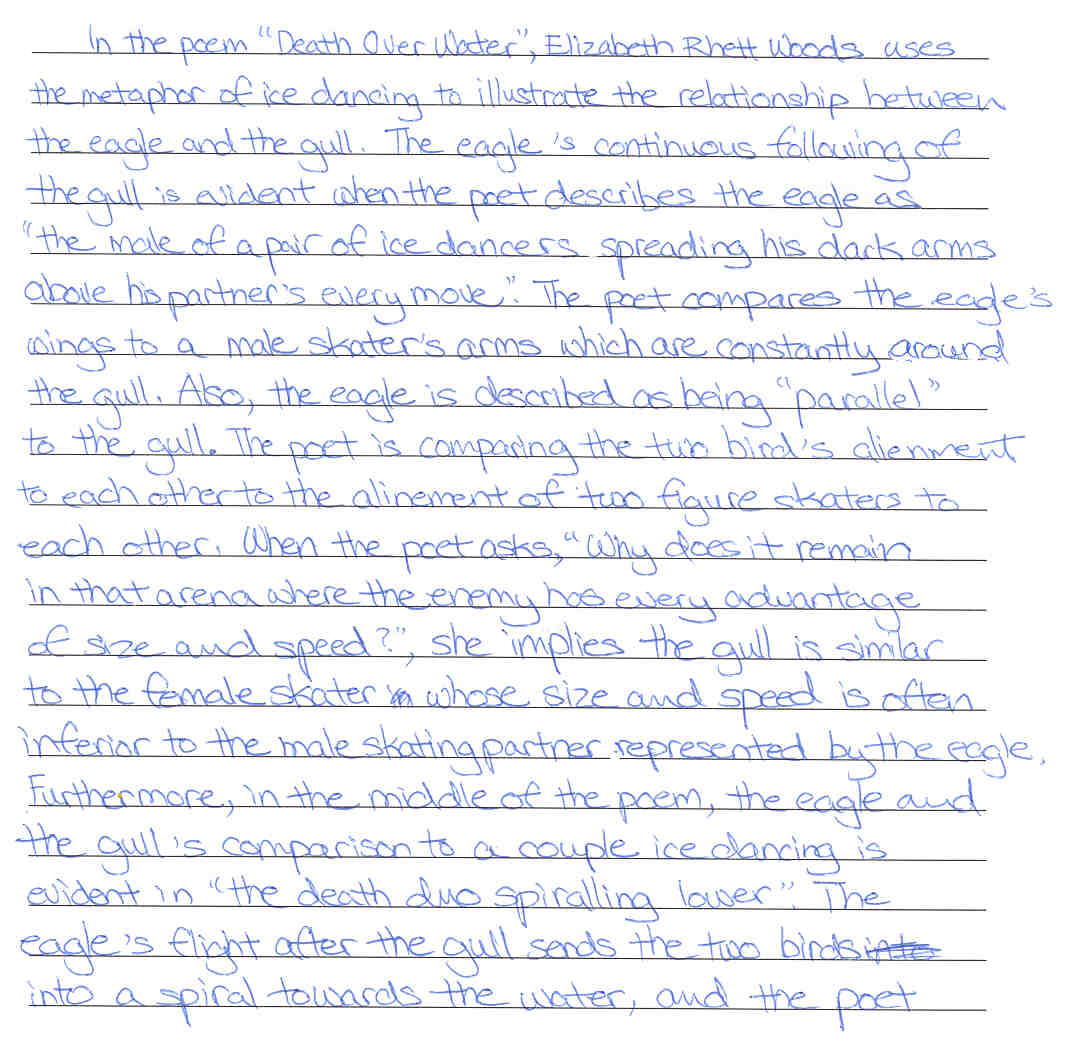 In the poem "Death Over Water", Elizabeth Rhett Woods uses
the metaphor of ice dancing to illustrate the relationship between
the eagle and the gull. The eagle's continuous following of
the gull is evident when the poet describes the eagle as
"the male of a pair of ice dancers spreading his dark arms
above his partner's every move". The poet compares the eagle's
wings to a male skater's arms which are constantly around
the gull. Also, the eagle is described as being "parallel"
to the gull. The poet is comparing the two bird's alienment
to each other to the alinement of two figure skaters to
each other. When the poet asks, "Why does it remain
in that arena where the enemy has every advantage
of size and speed?", she implies the gull is similar
to the female skater whose size and speed is often
inferior to the male skating partner represented by the eagle.
Furthermore, in the middle of the poem, the eagle and
the gull's comparison to a couple ice dancing is
evident in "the death duo spiralling lower". The
eagle's flight after the gull sends the two birds
into a spiral towards the water, and the poet